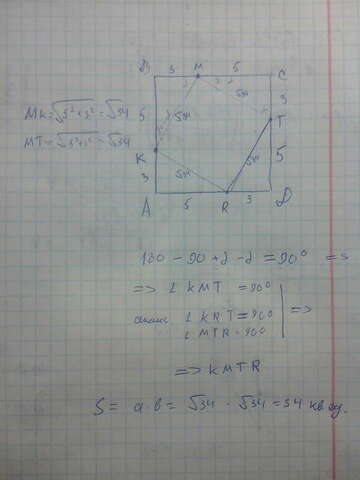 B 3 M 5 C
MK = √5²+3² = √34
MT = √5²+3² = √34
5 √34 √34 3
T
K
3 √34 √34 5
A 5 R 3 D
180 - 90 + 2 - 2 = 90° =>
=> ∠ KMT = 90°
∠ KRT = 90° =>
∠ MTR = 90°
=> KMTR
S = a · b = √34 · √34 = 34 кв ед.